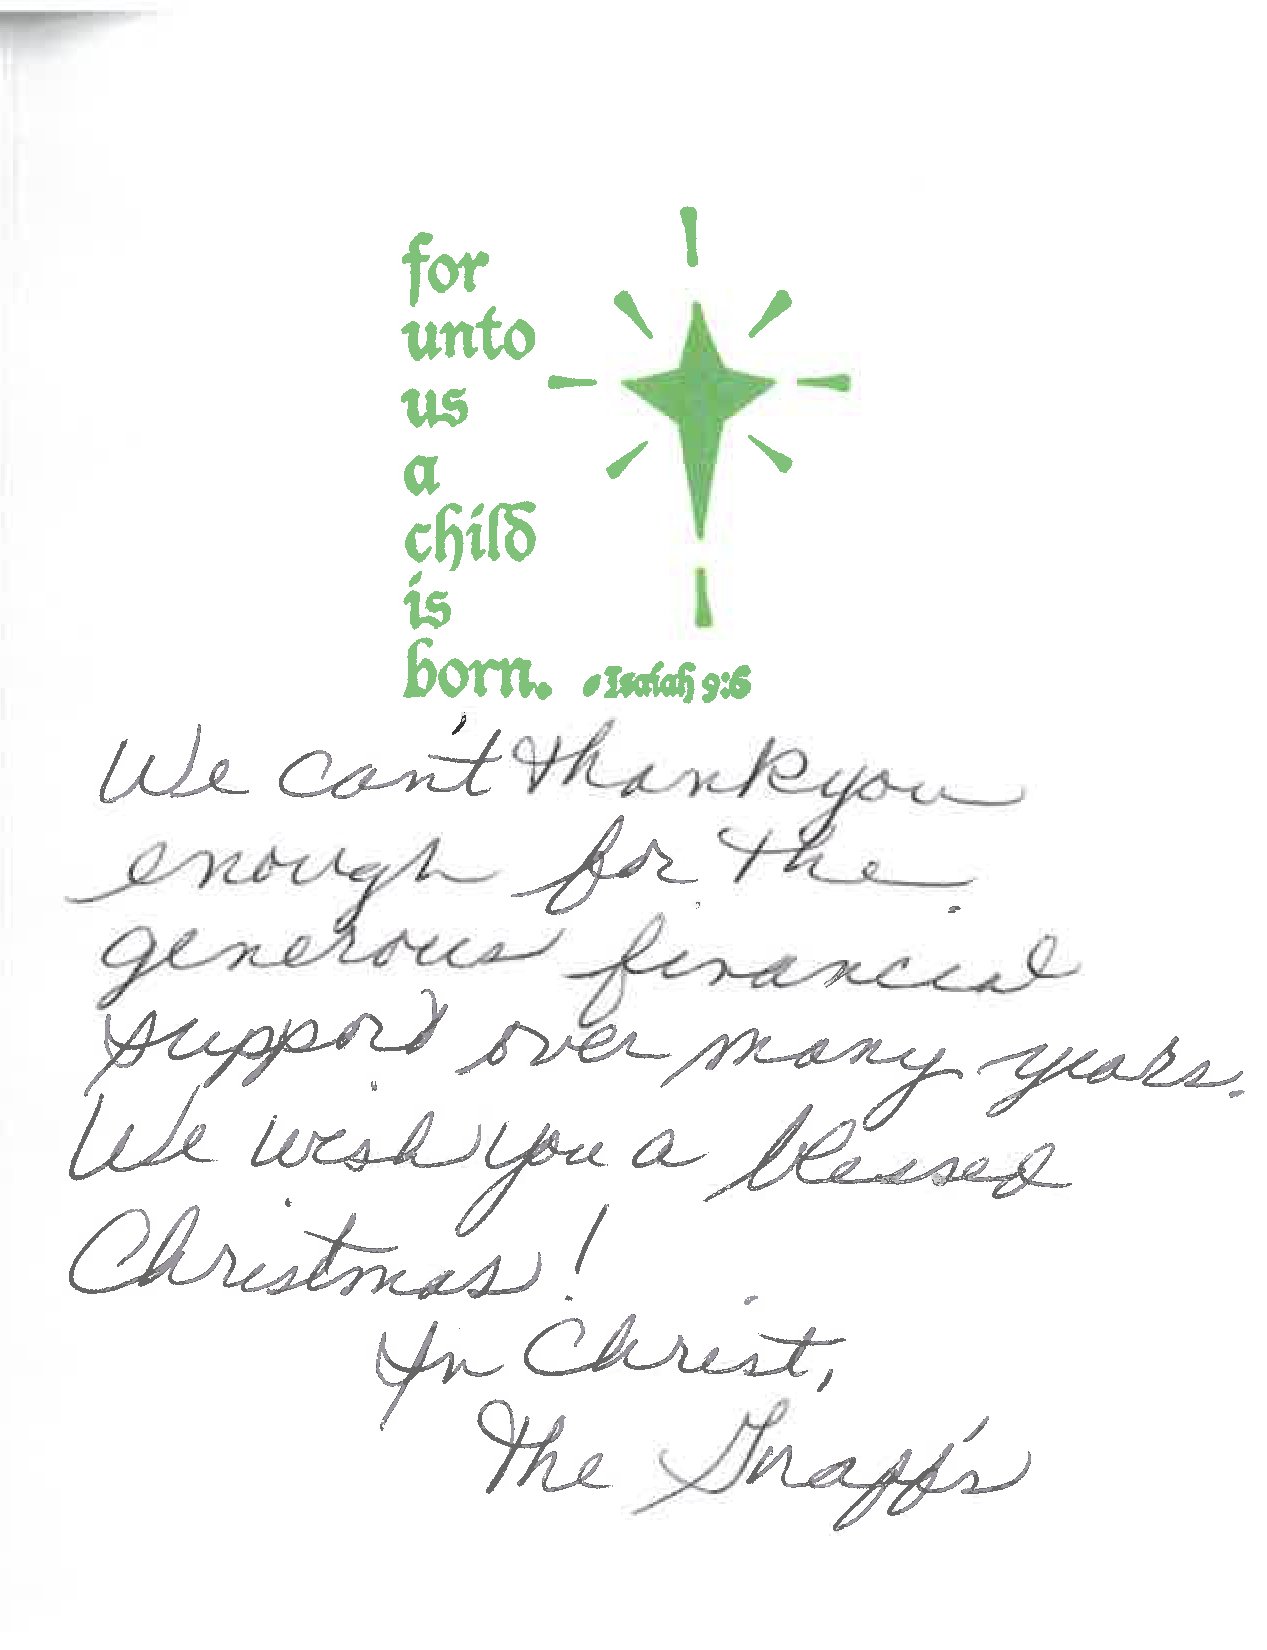 for
unto
us
a
child
is
born. • Isaiah 9:6
We can't thank you
enough for the
generous financial
support over many years.
We wish you a blessed
Christmas!
In Christ,
The